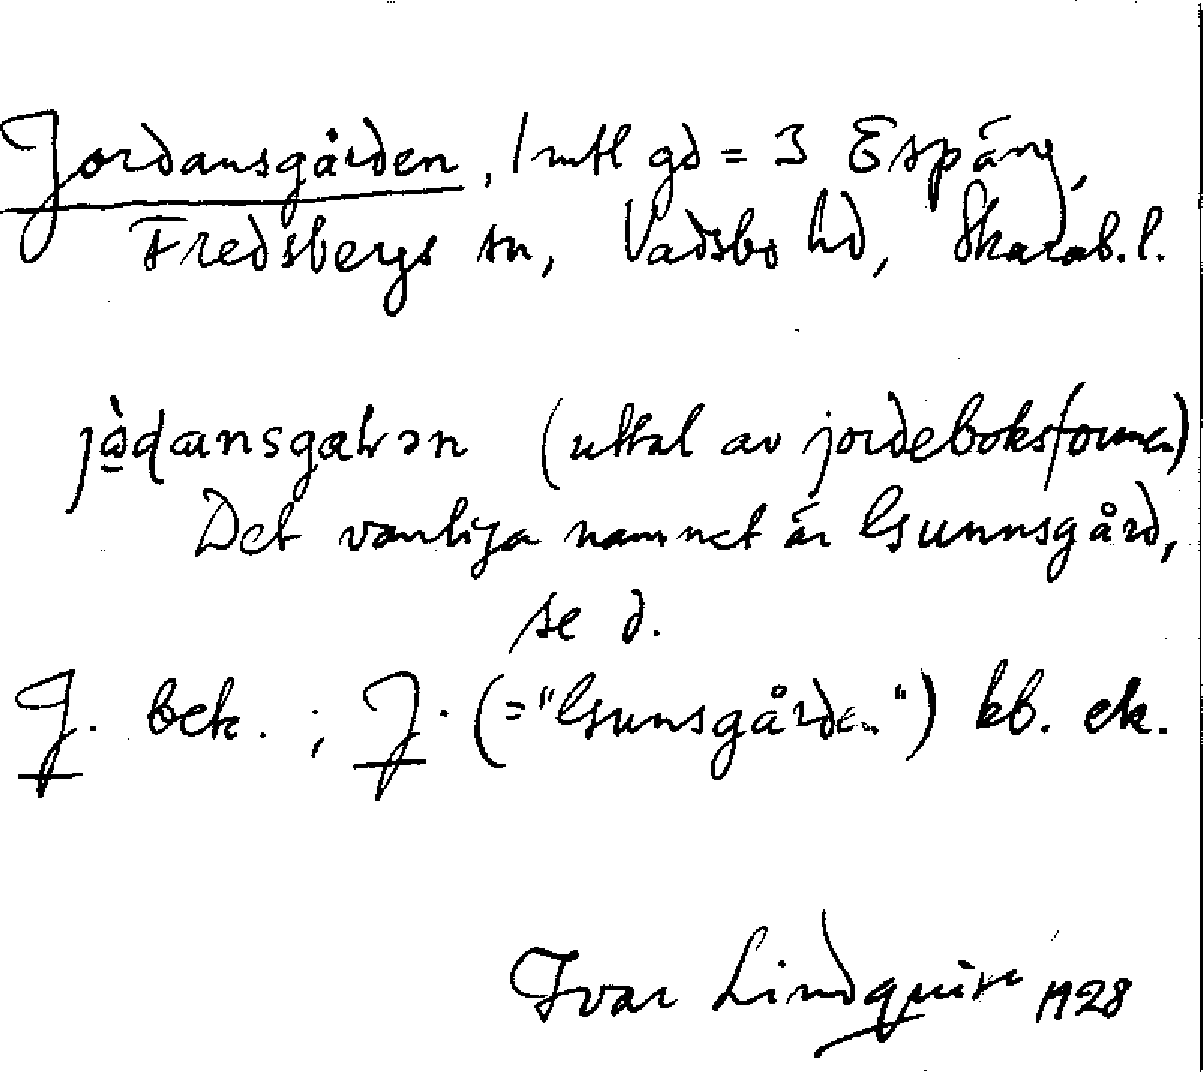 Jordansgården, 1 mtl gd = 3 Espäng,
Fredsbergs sn, Vadsbo hd, Skarab.l.
(uttal av jordeboksformen)
Det vanliga namnet är Gunnsgård,
se d.
J. bek. ; J. (= "Gunsgården") kb. ek.
Ivar Lindquist 1928